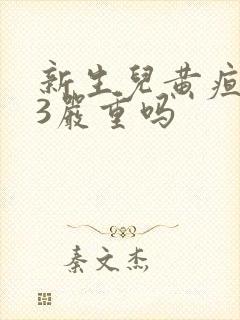 新生兒黄疸
3嚴重吗
秦文杰